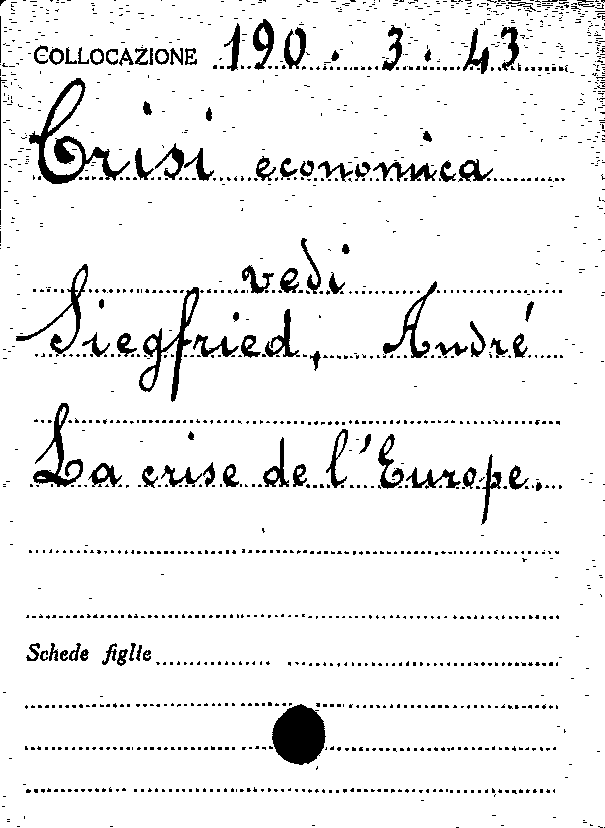 COLLOCAZIONE 190. 3. 43
Crisi economica
vedi
Siegfried, André
La crise de l'Europe.
Schede figlie